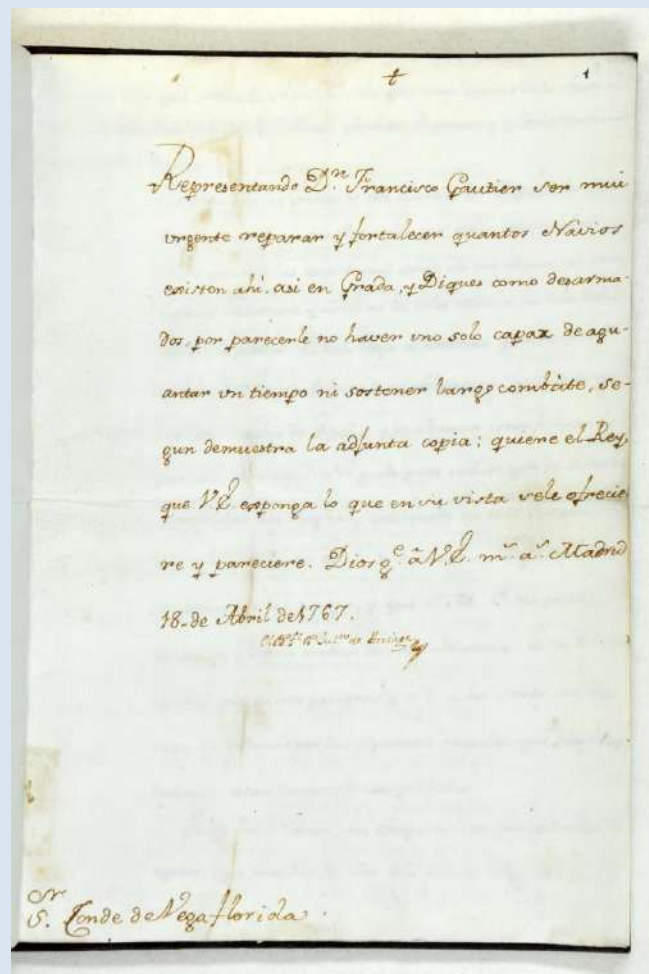 + 1
Representando Dn. Francisco Gautier ser mui
urgente reparar y fortalecer quantos Navios
existen ahi, asi en Grada, y Diques como desarma-
dos, por parecerle no haver uno solo capaz de agu-
antar un tiempo ni sostener largo combate, se-
gun demuestra la adjunta copia; quiere el Rey,
que V.E. exponga lo que en su vista sele ofrecie-
re y pareciere. Dios ge. â V.E. ms. as. Madrid
18-de Abril de 1767.
Sr.
S. Conde de Vegaflorida.